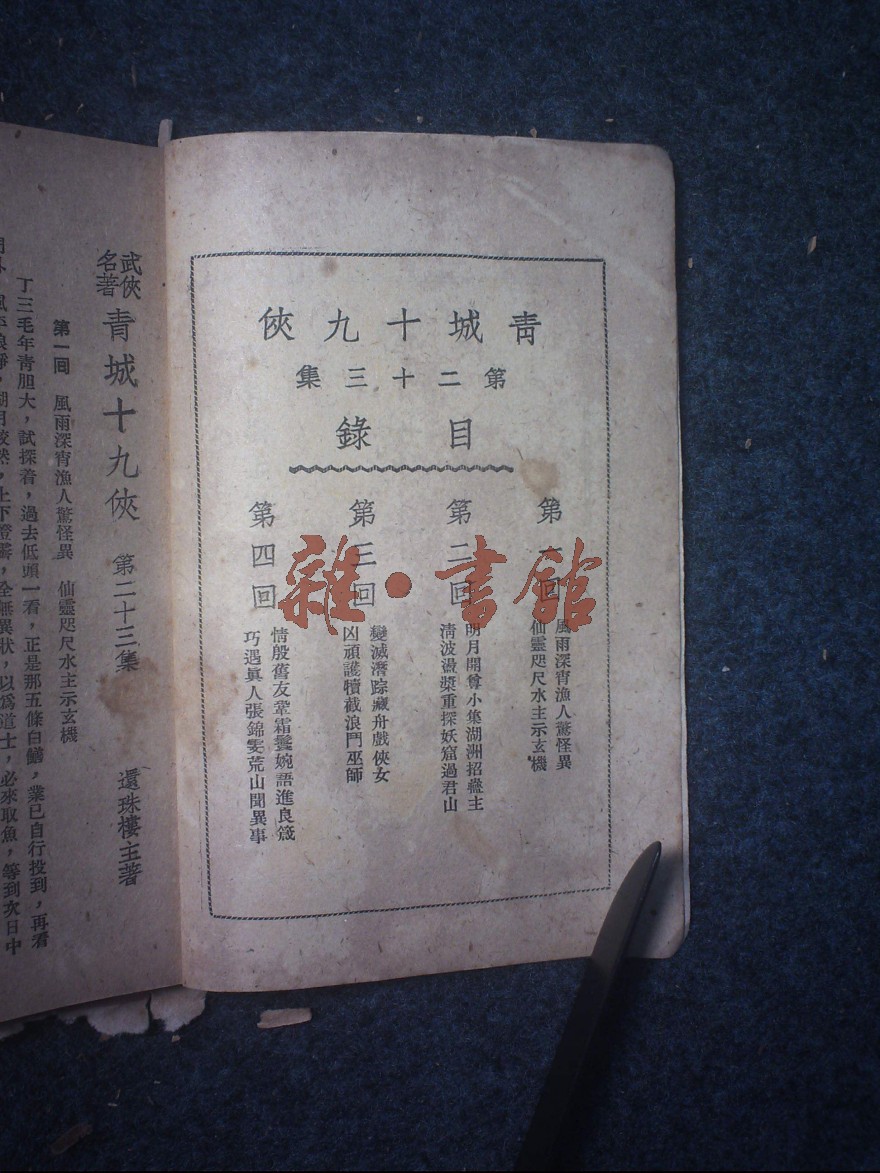 青城十九俠
第二十三集
目錄
第一回
風雨深宵漁人驚怪異
仙靈咫尺水主示玄機
第二回
明月開尊小集湖洲招蠡主
清波盪槳重探妖窟過君山
第三回
變滅潛踪藏舟戲俠女
凶頑護犢截浪鬥巫師
第四回
情殷舊友鞏霜鬟婉語進良箴
巧遇眞人張錦雯荒山聞異事
雜·書館
武俠名著
青城十九俠
第二十三集
還珠樓主著
第一回 風雨深宵漁人驚怪異 仙靈咫尺水主示玄機
丁三毛年青胆大，試探着，過去低頭一看，正是那五條白鱔，業已自行投到，再看
全無異狀，以爲道士，必來取魚，等到次日中